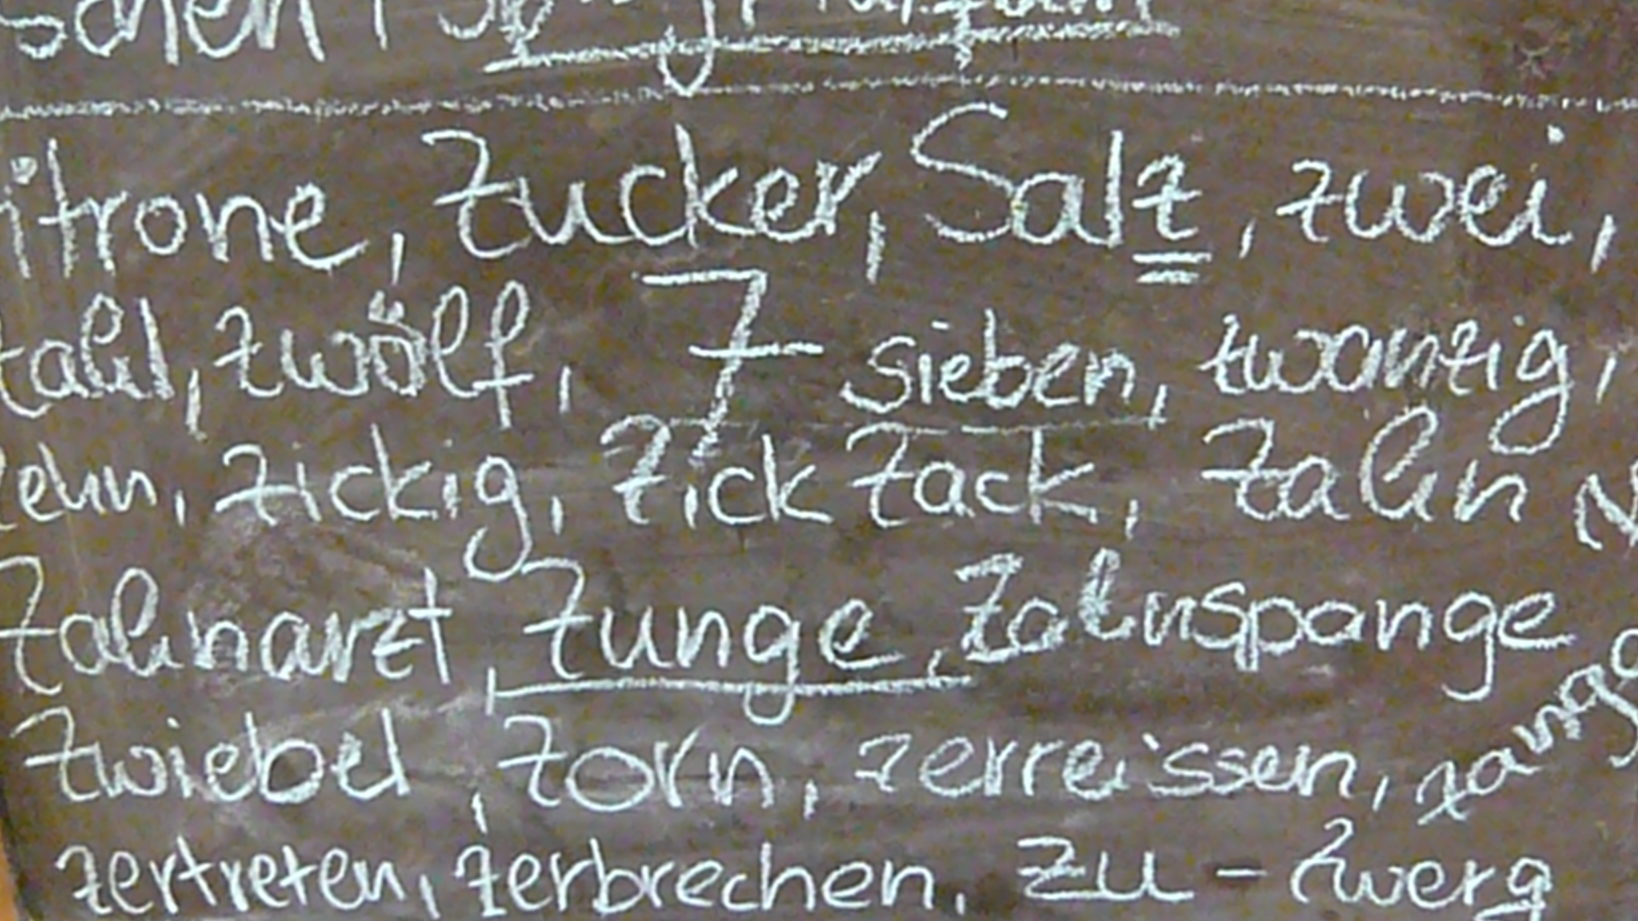 itrone, Zucker, Salz, zwei,
zahl, zwölf, 7 sieben, zwanzig,
zehn, zickig, Zick Zack, Zahn
Zahnarzt, Zunge, Zahnspange
Zwiebel, Zorn, zerreissen, zange
zertreten, zerbrechen, zu - Zwerg